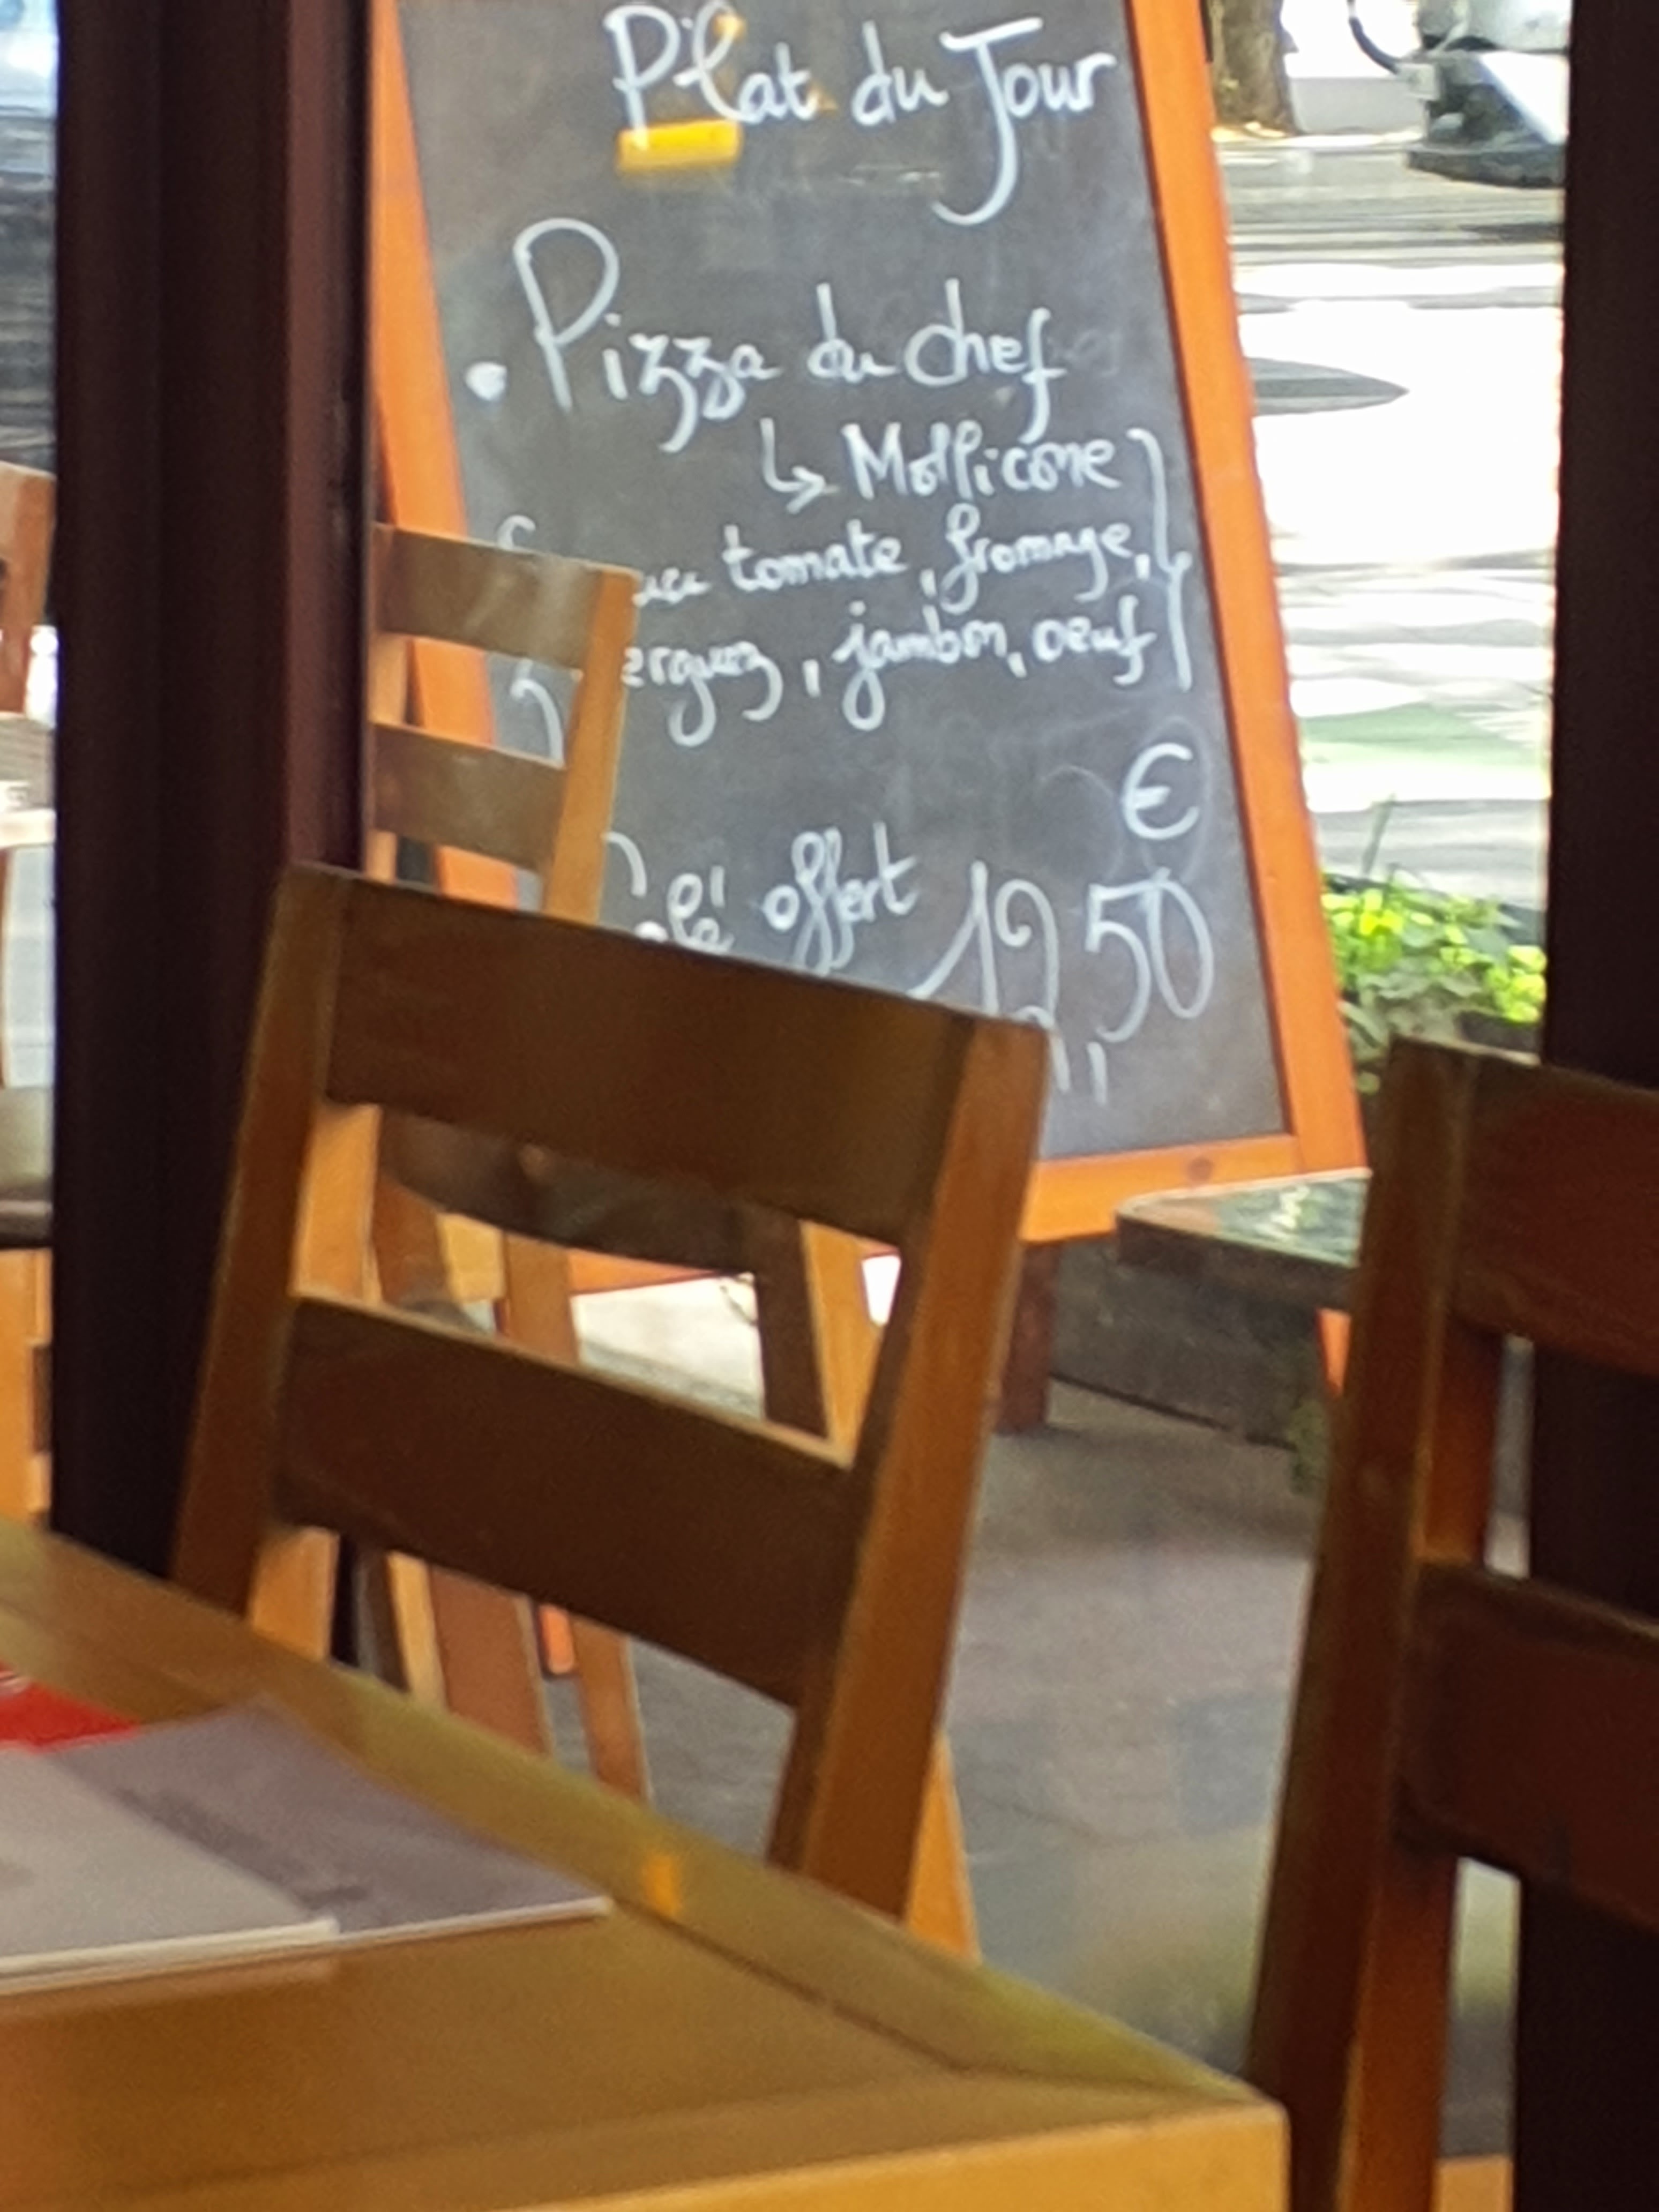 Plat du Jour
. Pizza du chef
↳ Mollicone
tomate, fromage,
jambon, oeuf
€
offert 12,50